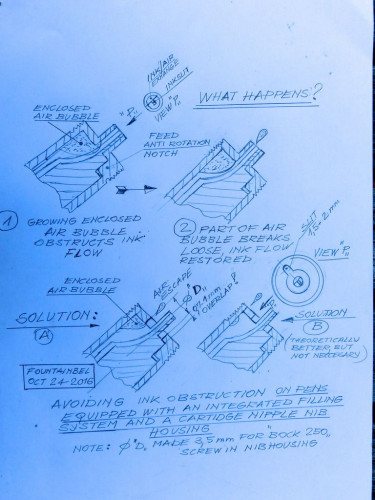 INK/AIR
EXCHANGE
INKSLIT
VIEW "P"
"P"
WHAT HAPPENS?
ENCLOSED
AIR BUBBLE
FEED
ANTI ROTATION
NOTCH
1 GROWING ENCLOSED
AIR BUBBLE
OBSTRUCTS INK
FLOW
2 PART OF AIR
BUBBLE BREAKS
LOOSE, INK FLOW
RESTORED.
SLIT
1,5-2mm
VIEW "P"
ENCLOSED
AIR BUBBLE
AIR
ESCAPE
Ø"D"
OVERLAP!
SOLUTION:
A
"P"
SOLUTION
B
(THEORETICALLY
BETTER, BUT
NOT NECESSARY)
FOUNTAINBEL
OCT 24-2016
AVOIDING INK OBSTRUCTION ON PENS
EQUIPPED WITH AN INTEGRATED FILLING
SYSTEM AND A CARTIDGE NIPPLE NIB
HOUSING
NOTE: Ø"D" MADE 3,5mm FOR "BOCK 250"
SCREW IN NIBHOUSING